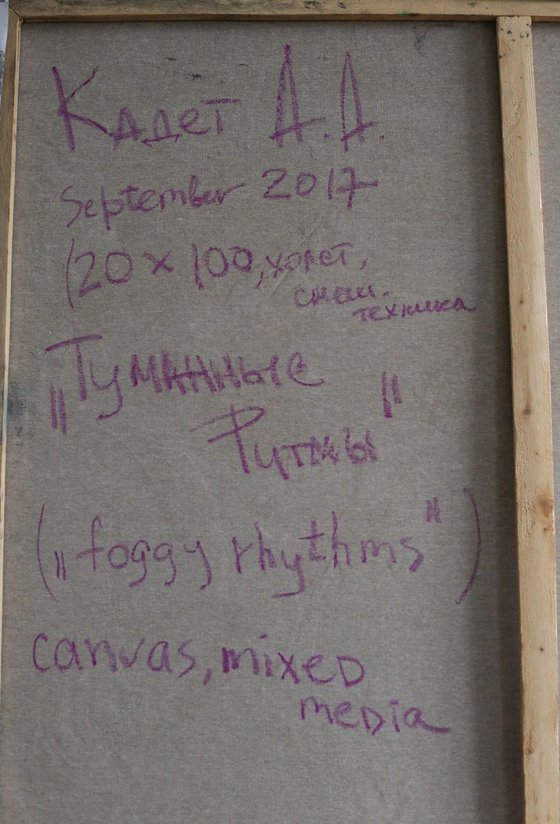 Кадет А.А.
September 2017
120 x 100, холст,
смеш.
техника
„Туманные
Ритмы"
(„foggy rhythms")
canvas, mixed
media